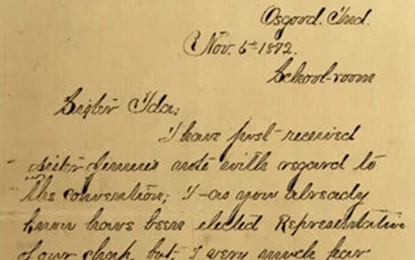 Osgood. Ind.
Nov. 6th 1872.
School-room
Sister Ida;
I have just received
sister Jennie's note with regard to
the convention; I-as you already
know have been elected Representative
of our chap. but, I very much fear